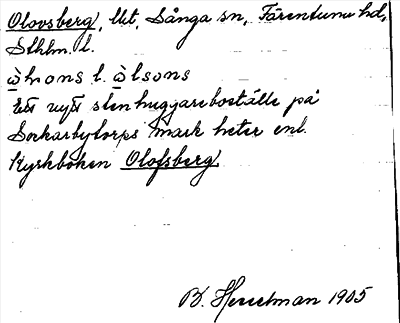 Olovsberg, lht, Sånga sn, Färentuna hd,
Sthlm. l.
ẁlvons l. ẁlsons
Ett nytt stenhuggareboställe på
Sockarbytorps mark heter enl.
Kyrkboken Olofsberg.
B. Hesselman 1905